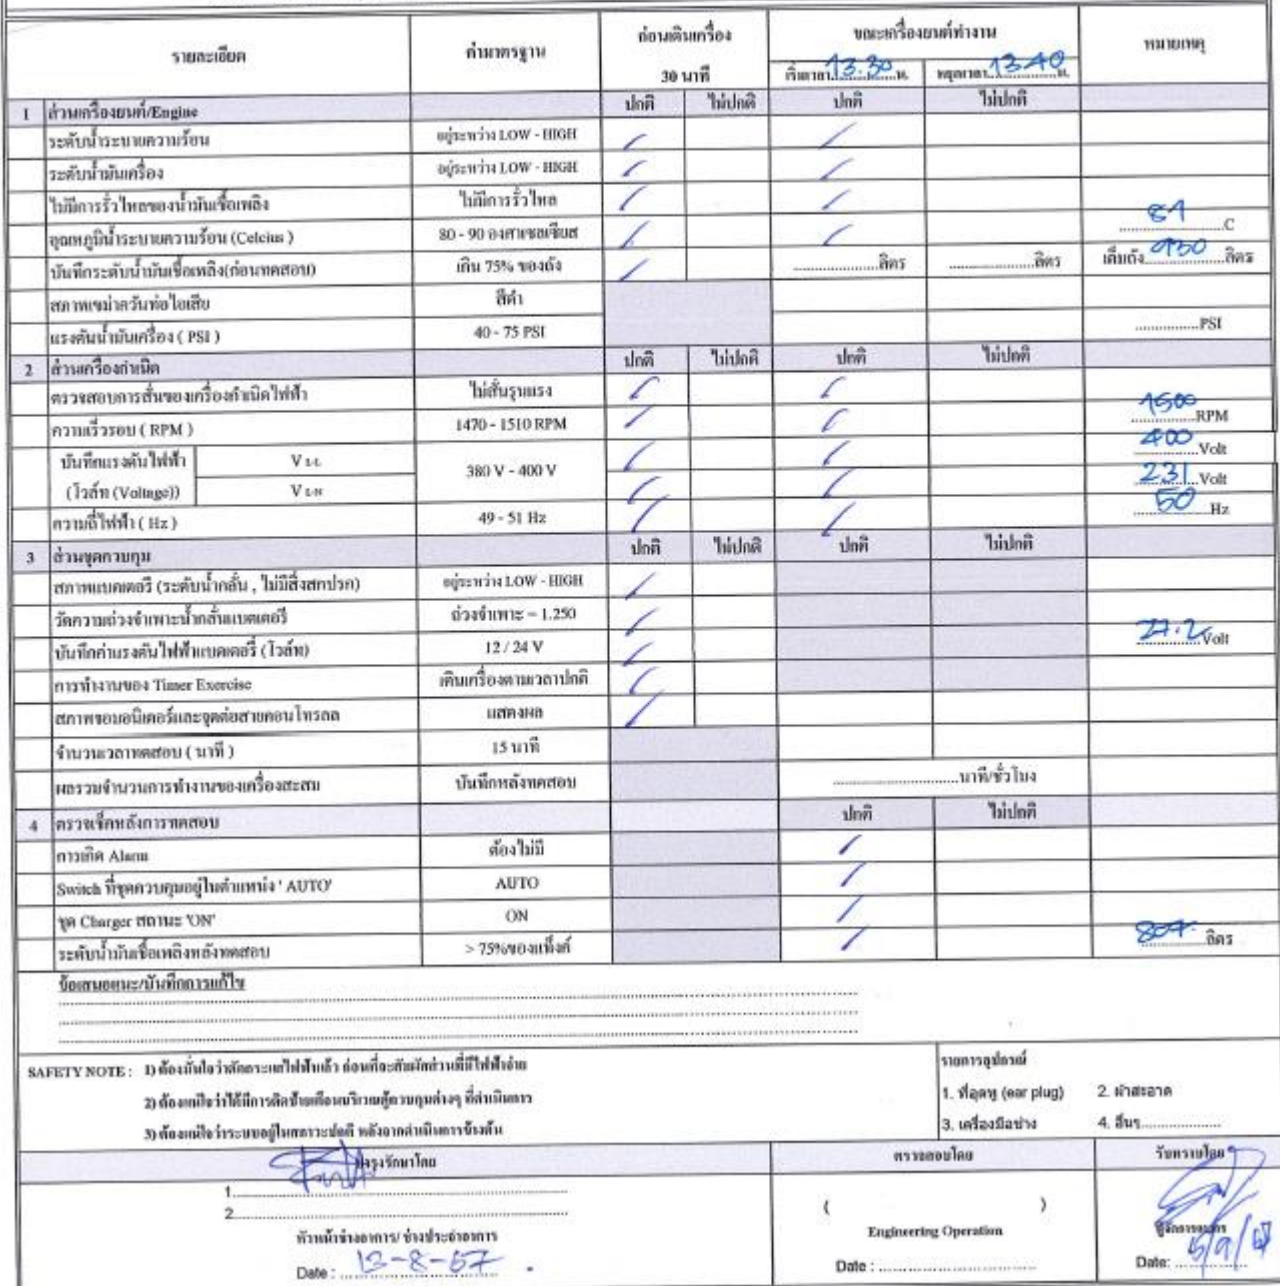 รายละเอียด ค่ามาตรฐาน ก่อนเดินเครื่อง 30 นาที ขณะเครื่องยนต์ทำงาน หมายเหตุ
เริ่มเวลา 13.30 น. หยุดเวลา 13.40 น.
1 ส่วนเครื่องยนต์/Engine ปกติ ไม่ปกติ ปกติ ไม่ปกติ
ระดับน้ำระบายความร้อน อยู่ระหว่าง LOW - HIGH
ระดับน้ำมันเครื่อง อยู่ระหว่าง LOW - HIGH
ไม่มีการรั่วไหลของน้ำมันเชื้อเพลิง ไม่มีการรั่วไหล
อุณหภูมิน้ำระบายความร้อน (Celcius ) 80 - 90 องศาเซลเซียส 81 C
บันทึกระดับน้ำมันเชื้อเพลิง(ก่อนทดสอบ) เกิน 75% ของถัง ลิตร ลิตร เต็มถัง 930 ลิตร
สภาพเขม่าควันท่อไอเสีย สีดำ
แรงดันน้ำมันเครื่อง ( PSI ) 40 - 75 PSI PSI
2 ส่วนเครื่องกำเนิด ปกติ ไม่ปกติ ปกติ ไม่ปกติ
ตรวจสอบการสั่นของเครื่องกำเนิดไฟฟ้า ไม่สั่นรุนแรง
ความเร็วรอบ ( RPM ) 1470 - 1510 RPM 1500 RPM
บันทึกแรงดันไฟฟ้า V L-L 380 V - 400 V 400 Volt
(โวล์ท (Voltage)) V L-N 231 Volt
ความถี่ไฟฟ้า ( Hz ) 49 - 51 Hz 50 Hz
3 ส่วนชุดควบคุม ปกติ ไม่ปกติ ปกติ ไม่ปกติ
สภาพแบตเตอรี่ (ระดับน้ำกลั่น , ไม่มีสิ่งสกปรก) อยู่ระหว่าง LOW - HIGH
วัดความถ่วงจำเพาะน้ำกลั่นแบตเตอรี่ ถ่วงจำเพาะ = 1.250
บันทึกค่าแรงดันไฟฟ้าแบตเตอรี่ (โวล์ท) 12 / 24 V 27.2 Volt
การทำงานของ Timer Exercise เดินเครื่องตามเวลาปกติ
สภาพจอมอนิเตอร์และจุดต่อสายคอนโทรลล แสดงผล
จำนวนเวลาทดสอบ ( นาที ) 15 นาที
ผลรวมจำนวนการทำงานของเครื่องสะสม บันทึกหลังทดสอบ นาที/ชั่วโมง
4 ตรวจเช็กหลังการทดสอบ ปกติ ไม่ปกติ
การเกิด Alarm ต้องไม่มี
Switch ที่ชุดควบคุมอยู่ในตำแหน่ง ' AUTO' AUTO
ชุด Charger สถานะ 'ON' ON
ระดับน้ำมันเชื้อเพลิงหลังทดสอบ > 75%ของแท็งค์ 807 ลิตร
ข้อเสนอแนะ/บันทึกการแก้ไข
SAFETY NOTE : 1) ต้องมั่นใจว่าตัดกระแสไฟฟ้าแล้ว ก่อนที่จะสัมผัสส่วนที่มีไฟฟ้าจ่าย
2) ต้องแน่ใจว่าได้มีการติดป้ายเตือนบริเวณตู้ควบคุมต่างๆ ที่ดำเนินการ
3) ต้องแน่ใจว่าระบบอยู่ในสภาวะปกติ หลังจากดำเนินการข้างต้น
รายการอุปกรณ์
1. ที่อุดหู (ear plug) 2. ผ้าสะอาด
3. เครื่องมือช่าง 4. อื่นๆ
บำรุงรักษาโดย ตรวจสอบโดย รับทราบโดย
1
2
( )
หัวหน้าช่างอาคาร/ ช่างประจำอาคาร Engineering Operation ผู้จัดการอาคาร
Date : 13-8-67 Date : Date: 5/9/67